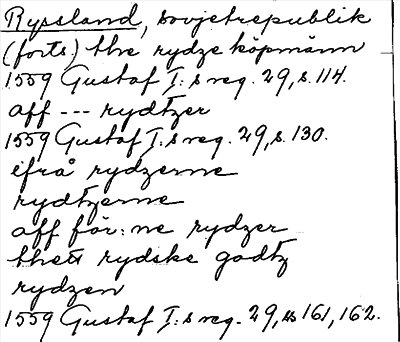 Ryssland, sovjetrepublik
(forts) thre rydze köpmänn
1559 Gustaf I:s reg. 29, s. 114.
aff --- rydtzer
1559 Gustaf I:s reg. 29, s. 130.
ifrå rydzerne
rydtzerne
aff för:ne rydzer
thett rydske godtz
rydzen
1559 Gustaf I:s reg. 29, ss 161, 162.